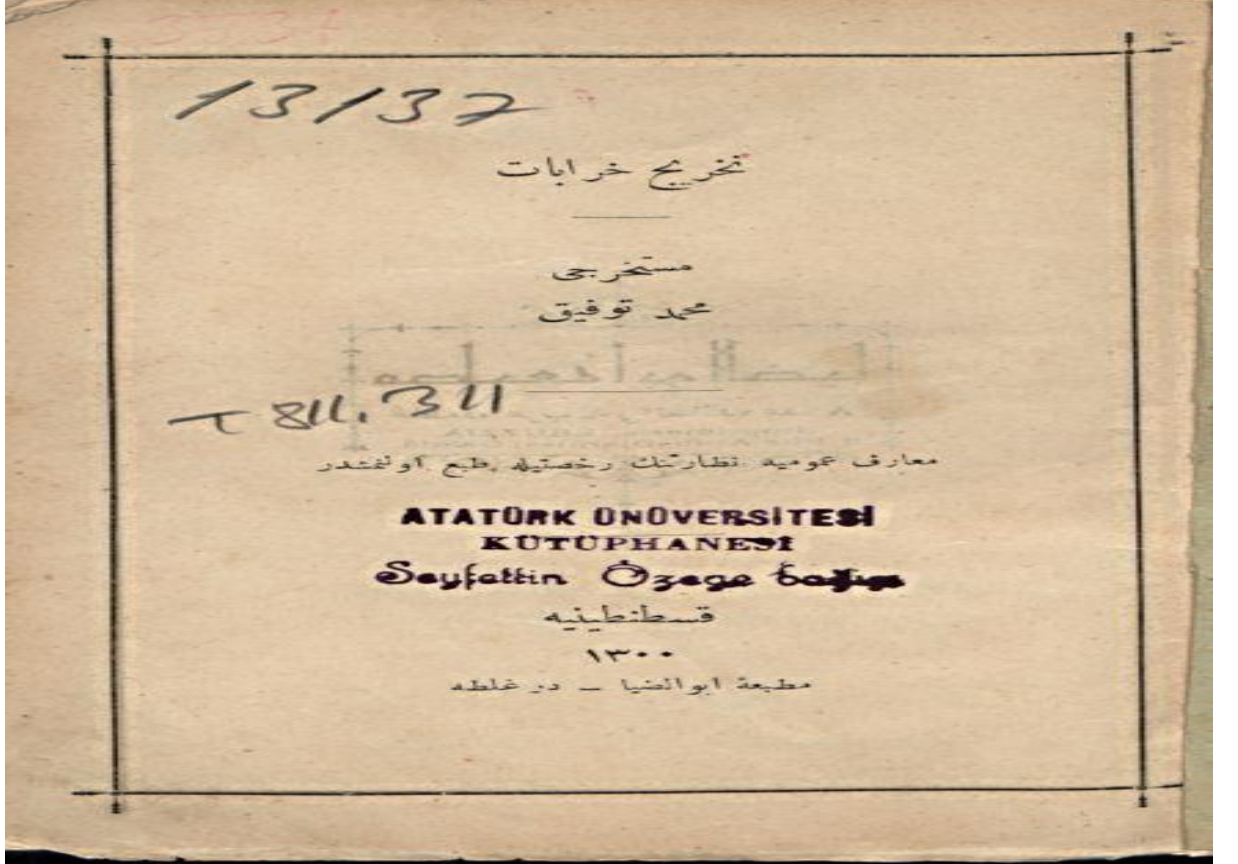 13137
تخریج خرابات
مستخرجی
محمد توفیق
T 811.311
معارف عمومیه نظارتنك رخصتیله طبع اولنمشدر
ATATÜRK ÜNÜVERSİTESİ
KÜTÜPHANESİ
Seyfettin Özege bağışı
قسطنطینیه
١٣٠٠
مطبعهٔ ابوالضیا ـ در غلطه